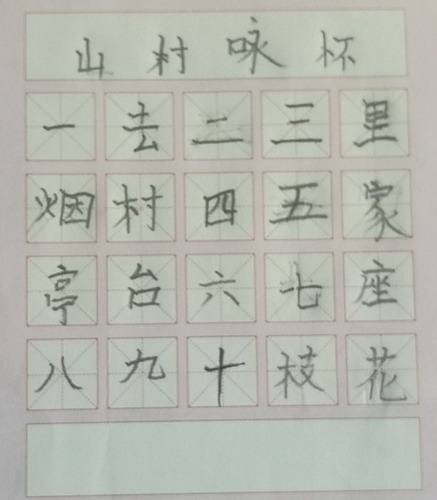 山村咏杯
一去二三里
烟村四五家
亭台六七座
八九十枝花